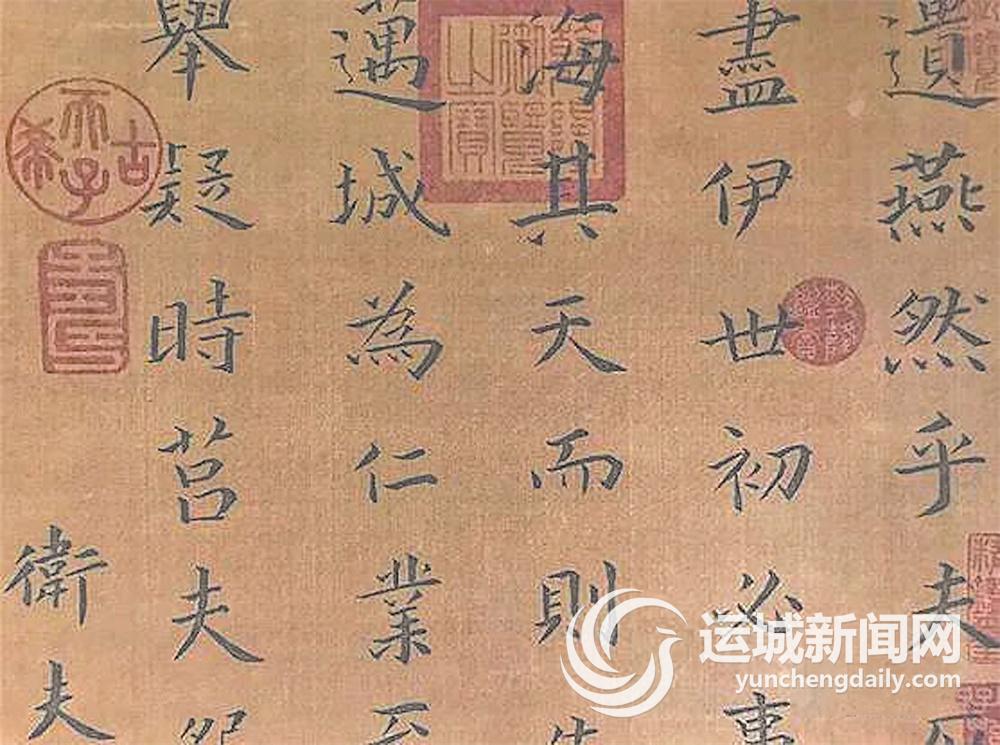 遺燕然乎夫
盡伊世初必事
海其天而則
邁城為仁業
舉疑時莒夫
衛夫
古希天子
运城新闻网
yunchengdaily.com